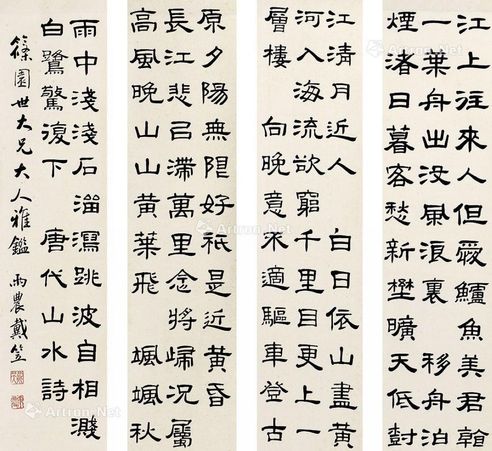 江上往來人但愛鱸魚美君看
一葉舟出沒風浪裏 移舟泊
煙渚日暮客愁新野曠天低樹
江清月近人 白日依山盡黃
河入海流欲窮千里目更上一
層樓 向晚意不適驅車登古
原夕陽無限好祇是近黃昏
長江悲已滯萬里念將歸況屬
高風晚山山黃葉飛 颯颯秋
雨中淺淺石溜瀉跳波自相濺
白鷺驚復下 唐代山水詩
篠園世大兄大人雅鑑 雨農戴笠
Artron.Net
Artron.Net
Artron.Net
Artron.Net